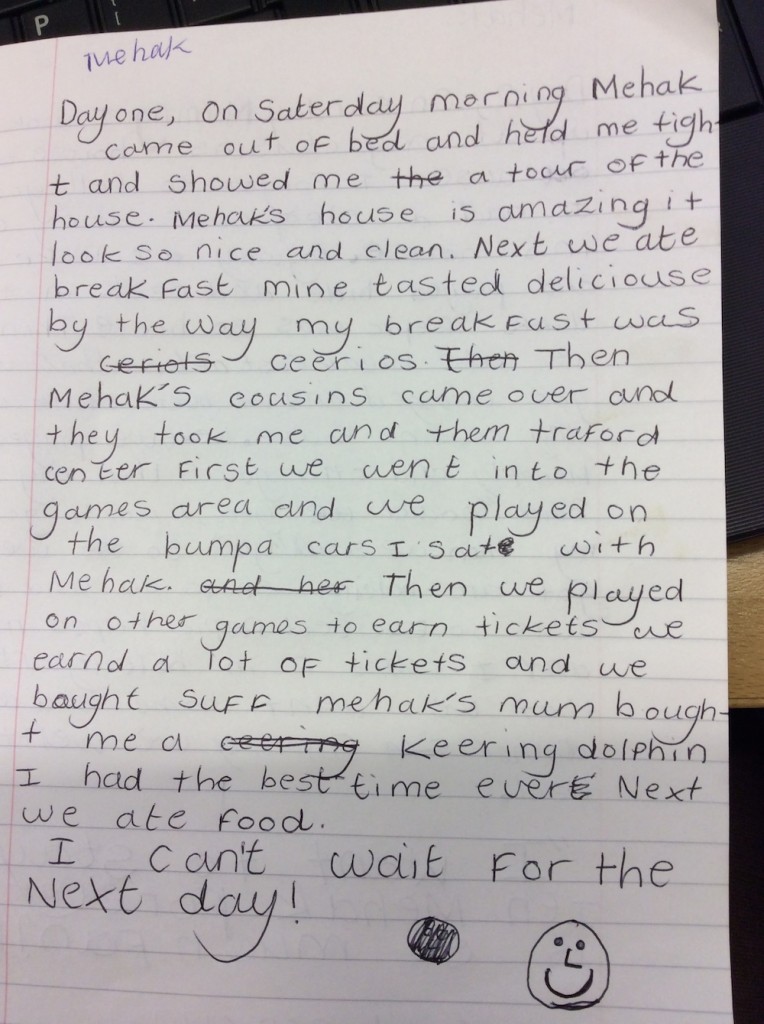 P
Mehak
Day one, on Saterday morning Mehak
came out of bed and held me tigh-
t and showed me the a tour of the
house. Mehak's house is amazing it
look so nice and clean. Next we ate
breakfast mine tasted deliciouse
by the way my breakfast was
ceriots ceerios. Then Then
Mehak's cousins came over and
they took me and them traford
center First we went into the
games area and we played on
the bumpa cars I sate with
Mehak. and her Then we played
on other games to earn tickets we
earnd a lot of tickets and we
bought suff mehak's mum bough-
t me a ceering keering dolphin
I had the best time ever Next
we ate food.
I can't wait for the
Next day!